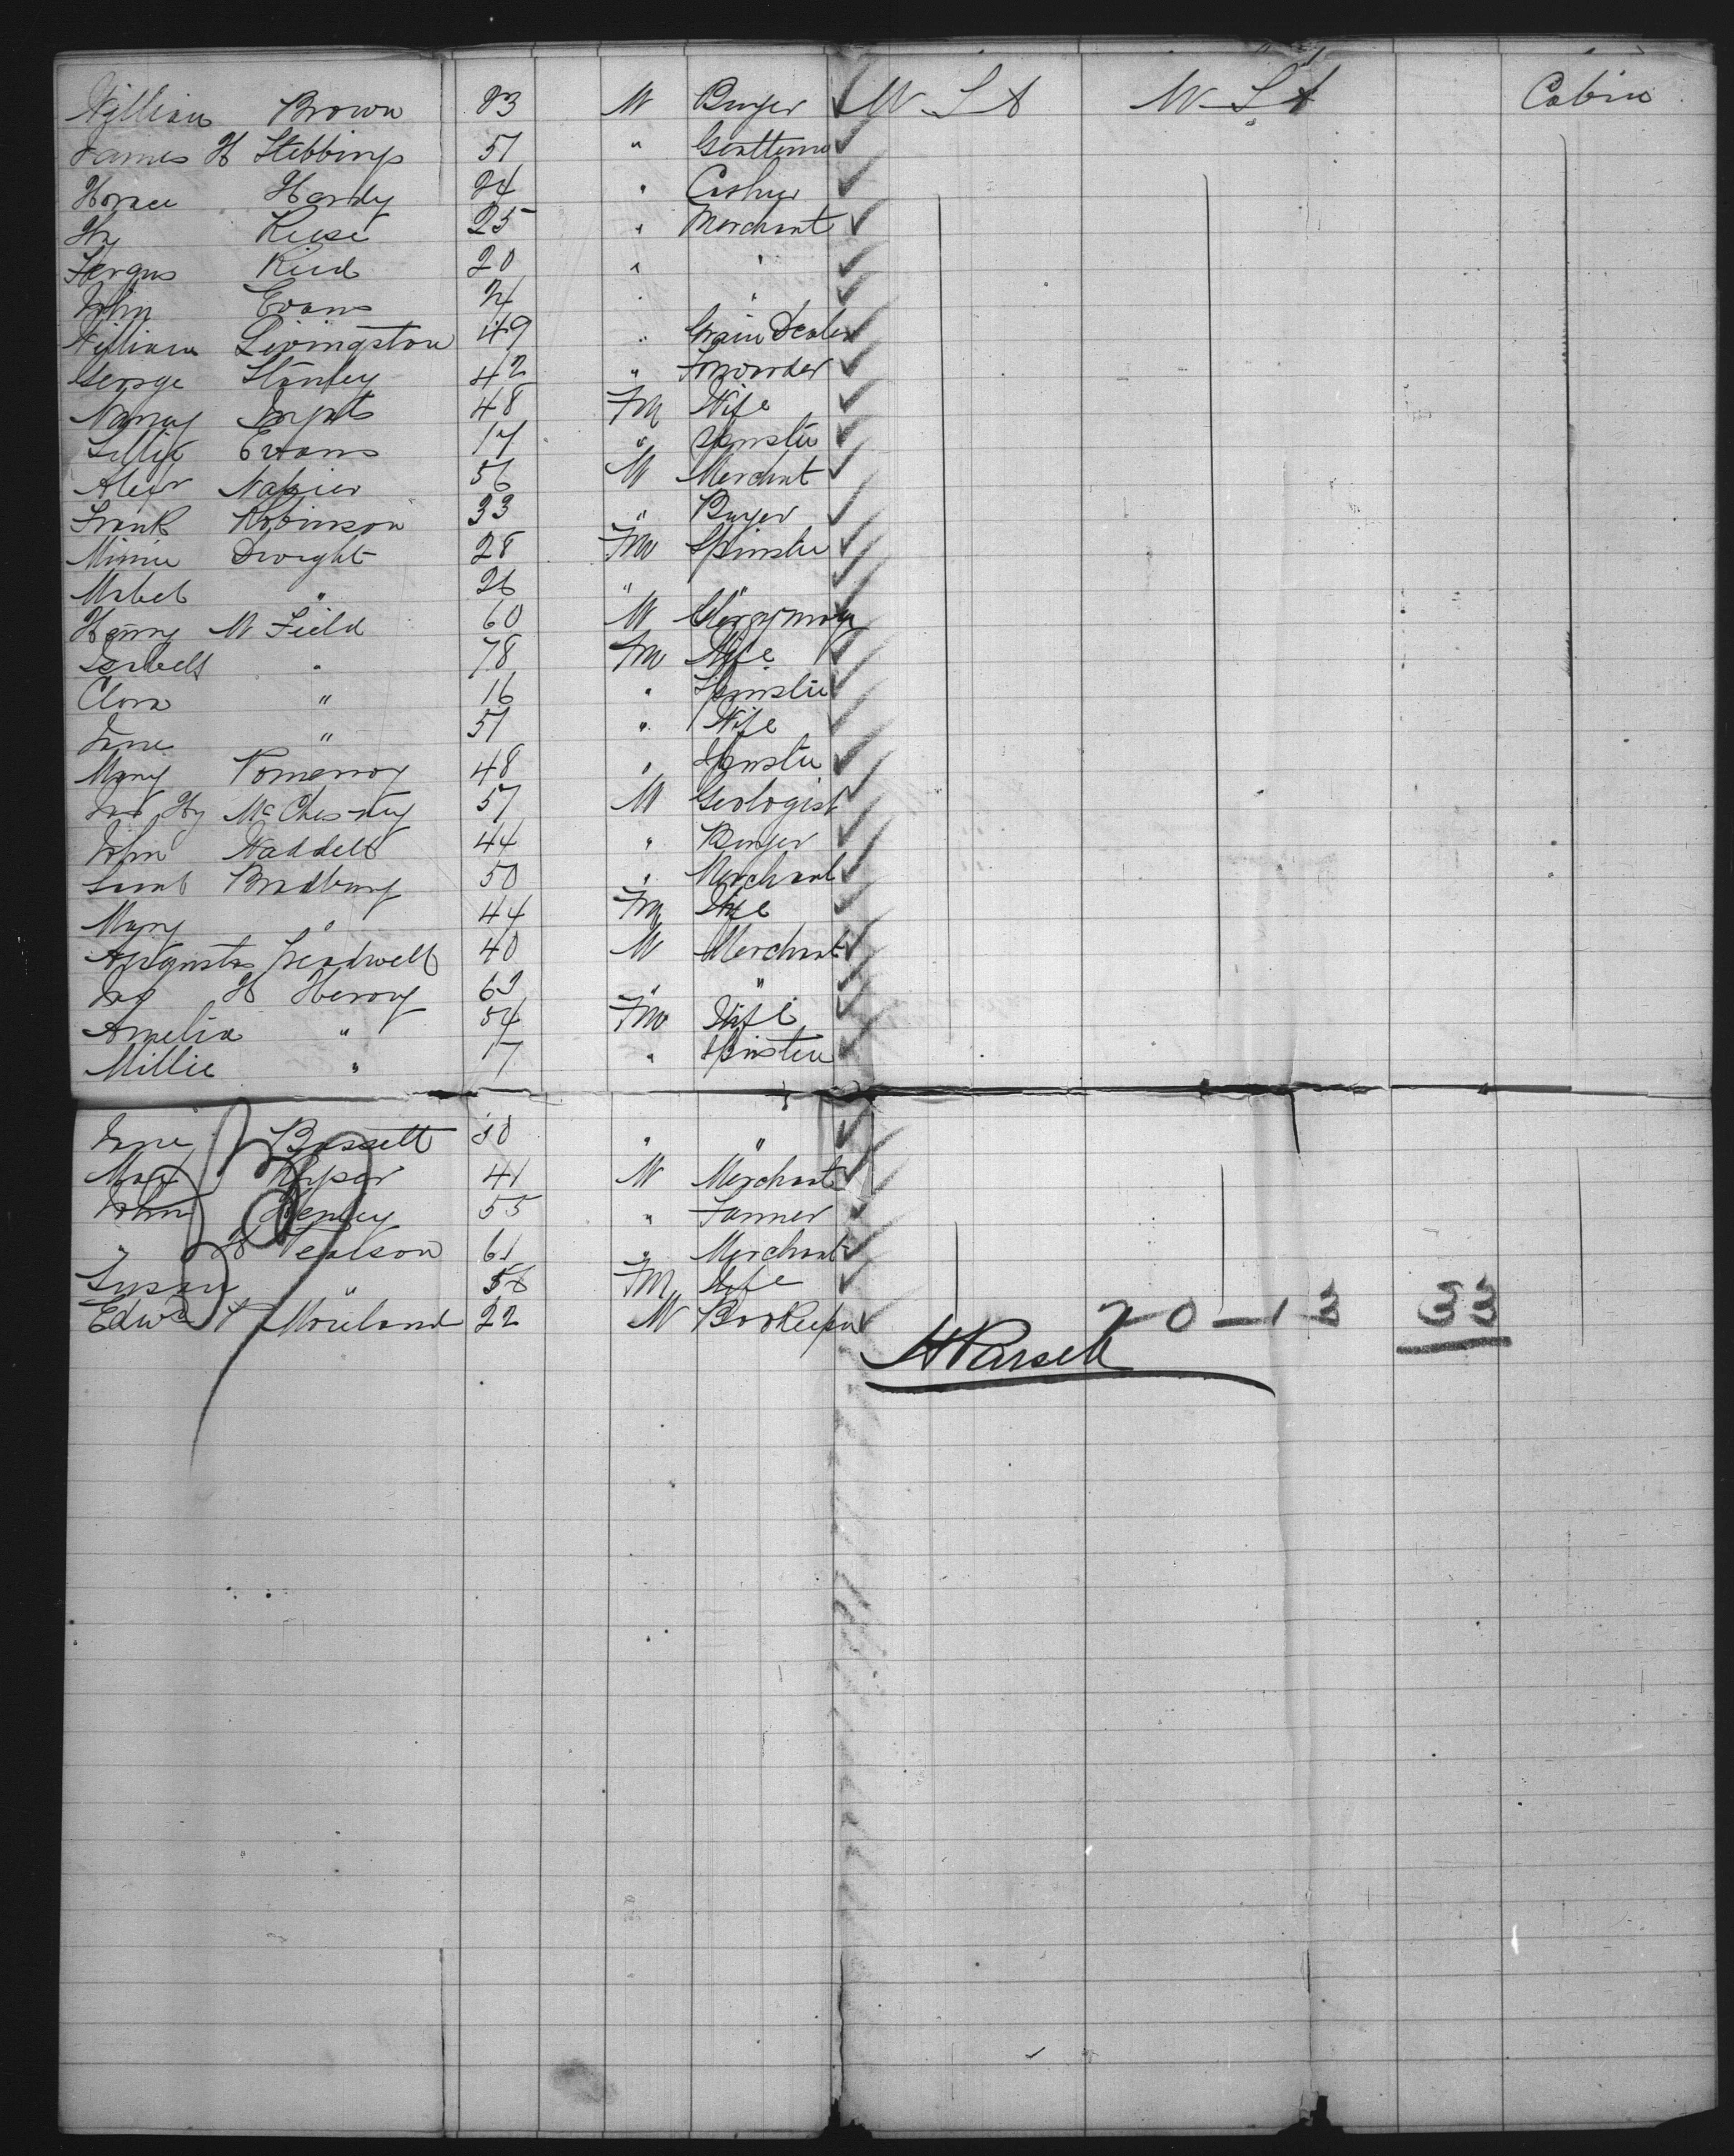 William Brown 23 M Buyer U S A U S A Cabin
James H Stebbings 51 " Gentleman
Horace Hardy 24 " Cashier
Hy Reese 25 " Merchant
Fergus Reid 20 " "
John Evans 24 " "
William Livingston 49 " Grain Dealer
George Stanley 42 " Forwarder
Nancy 48 Fm Wife
Lillie Evans 17 " Spinster
Alexr Napier 56 M Merchant
Frank Robinson 33 " Buyer
Minnie Dwight 28 Fm Spinster
Mabel " 26 " "
Henry M Field 60 M Clergyman
Isabell " 78 Fm Wife
Clara " 16 " Spinster
Jane " 51 " Wife
Mary Pomerroy 48 " Spinster
Jas Hy McChesney 57 M Geologist
John Waddell 44 " Buyer
Saml Bradbury 50 " Merchant
Mary " 44 Fm Wife
Augustus Treadwell 40 M Merchant
H Henry 62 " "
Amelia " 54 Fm Wife
Millie " 17 " Spinster
Jane Bassett 30 " "
Max 41 M Merchant
John Henley 55 " Farmer
" H Pearson 61 " Merchant
Susan " 58 Fm Wife
Edwd T Moreland 22 M Bookeeper 20-13 33
H Parsell